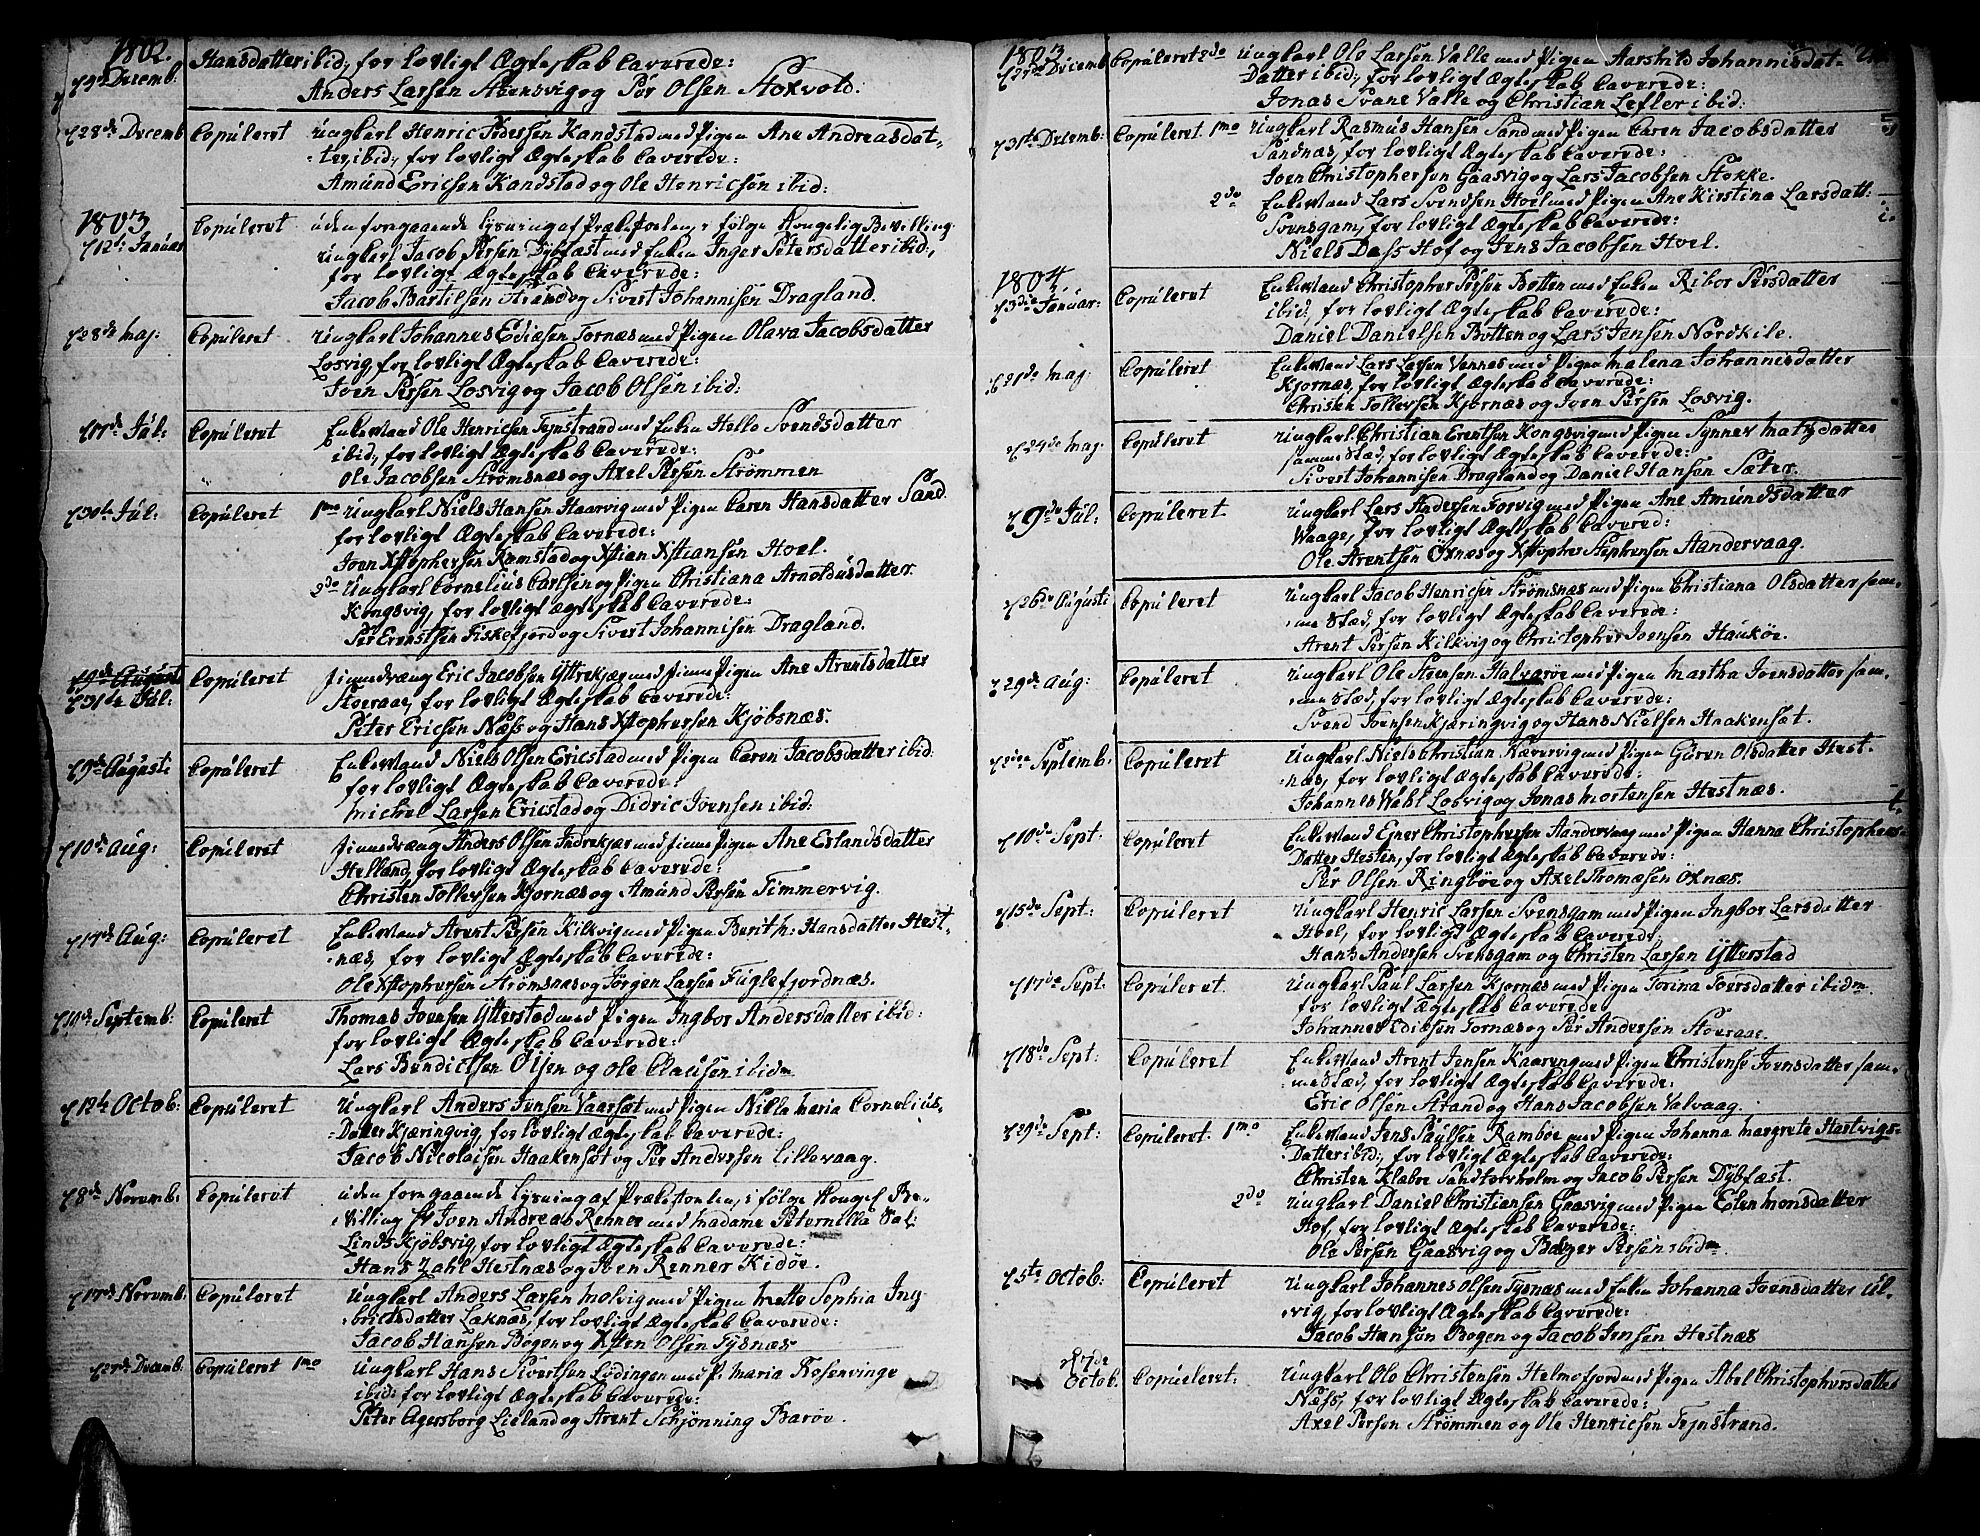 1802.
Hansdatter ibid, for lovligt Ægteskab Caverede:
Anders Larsen Stensvig og Per Olsen Stoxvold.
d 28de Decemb Copúleret Ungkarl Henric Pedersen Kandstad med Pigen Ane Andreasdat-
-ter ibid, for lovligt Ægteskab Caverede:
Amúnd Ericsen Kandstad og Ole Henricsen ibid:
1803
d 12te Janúar Copúleret uden foregaaende lysning af Prækestolen, i følge Kongelig Bevilling
Ungkarl Jacob Persen Dybfæst med Enken Inger Petersdatter ibid,
for lovligt Ægteskab Caverede:
Jacob Bartilsen Strand og Sivert Johannisen Dragland.
d 28de Maj: Copúleret Ungkarl Johannes Ediasen Tornæs med Pigen Olava Jacobsdatter
Losvig, for lovligt Ægteskab Caverede:
Iven Persen Losvig og Jacob Olsen ibid:
d 17de Júl: Copúleret Enkemand Ole Henricsen Fejnstrand med Enken Helle Svendsdatter
ibid, for lovligt Ægteskab Caverede:
Ole Jacobsen Strømsnæs og Axel Persen Strömmen
d 30te Júl: Copúleret 1mo Ungkarl Niels Hansen Haarvig med Pigen Caren Hansdatter Sand
for lovligt Ægteskab Caverede:
Iven Xstophersen Ramstad og Xstian Xstiansen Hoel.
2do Ungkarl Cornelius Carlsen og Pigen Christiana Arnoldúsdatter
Kongsvig, for lovligt Ægteskab Caverede:
Per Erentsen Fiskefjord og Sivert Johannisen Dragland.
d 31te Júl: Copúleret Finnedræng Eric Jacobsen Yttrekjær med Finne Pigen Ane Arentsdatter
Stoeraae, for lovligt Ægteskab Caverede:
Peter Ericsen Næss og Hans Xstophersen Kjöbsnæs.
d 9de Aúgústi Copúleret Enkemand Niels Olsen Ericstad med Pigen Caren Jacobsdatter ibid:
for lovligt Ægteskab Caverede:
Michel Larsen Ericstad og Didric Ivensen ibid:
d 10de Aug: Copúleret Finnedræng Anders Olsen Indrekjær med Finne Pigen Ane Erlandsdatter
Helland, for lovligt Ægteskab Caverede:
Christen Tollevsen Kjornæs og Amúnd Persen Timmervig.
d 14de Aug: Copúleret Enkemand Arent Persen Kilkvig med Pigen Berith: Hansdatter Hest-
-næs, for lovligt Ægteskab Caverede:
Ole Xstophersen Strömsnæs og Jörgen Larsen Fúglefjordnæs.
d 10de Septemb: Copúleret Thomas Ivensen Ytterstad med Pigen Ingbor Andersdatter ibid:
for lovligt Ægteskab Caverede:
Lars Bendictsen Oijen og Ole Claúsen ibidm
d 12te Octob: Copúleret Ungkarl Anders Jensen Vaarsæt med Pigen Nilla Maria Cornelius-
-Datter Kjæringvig, for lovligt Ægteskab Caverede:
Jacob Nicolaisen Haakensæt og Per Andersen Lillevaag.
d 8de Novemb: Copúleret uden foregaaende lysning af Prækestolen, i følge Kongel Be-
-villing Hr Iven Andreas Renner med Madame Peternilla Dal:
Linds Kjöbsvig, for lovligt Ægteskab Caverede:
Hans Zahl Hestnæs og Iven Renner Kidöe.
d 17de Novemb: Copúleret Ungkarl Anders Larsen Molvig med Pigen Mette Sophia Ing-
-brictsdatter Laknæs, for lovligt Ægteskab Caverede:
Jacob Hansen Bogen og Xsten Olsen Tysnæs
d 27de Decemb: Copúleret 1mo Ungkarl Hans Sivertsen Lödingen med P. Maria Rosenvinge
ibid: for lovligt Ægteskab Caverede:
Peter Agersborg Lieland og Arent Schjönning Baröe.
1803
d 27de Decemb Copúleret 2do Ungkarl Ole Larsen Valle med Pigen Aarshild Johannisdat-
Datter ibid; for lovligt Ægteskab Caverede:
Jonas Svane Valle og Christian Lefler ibid:
d 31te Decemb: Copúleret. 1mo Ungkarl Rasmús Hansen Sand med Pigen Caren Jacobsdatter
Sandnæs, for lovligt Ægteskab Caverede:
Iven Christophersen Gaasvig og Lars Jacobsen Stokke.
2do Enkemand Lars Svendsen Hoel med Pigen Ane Kirstina Larsdatt:
Svensgam, for lovligt Ægteskab Caverede:
Niels Dass Hof og Jens Jacobsen Hoel.
1804
d 3die Janúar: Copúleret Enkemand Christopher Persen Botten med Enken Ribor Persdatter
ibid, for lovligt Ægteskab Caverede:
Daniel Danielsen Botten og Lars Jensen Nordkile.
d 21de Maj Copúleret Enkemand Lars Larsen Vennes med Pigen Malena Johannisdatter
Kjornæs, for lovligt Ægteskab Caverede:
Christen Tollevsen Kjornæs og Iven Persen Losvig.
d 24de Maj Copúleret Ungkarl Christian Erentsen Kongsvig med Pigen Synnev Matzdatter
samme Stæd, for lovligt Ægteskab Caverede:
Sivert Johannisen Dragland og Daniel Hansen Sæter.
d 9de Júl: Copúleret. Ungkarl Lars Andersen Forvig med Pigen Ane Amúndsdatter
Waage, for lovligt Ægteskab Caverede:
Ole Arentsen Öxnæs og Xstopher Stephensen Sandervaag.
d 26de Augusti Copúleret Ungkarl Jacob Henricsen Strömsnæs med Pigen Christiana Olsdatter sam-
-me Stæd, for lovligt Ægteskab Caverede:
Arent Persen Kilkvig og Christopher Ivensen Haúköe.
d 29de Aug: Copúleret Ungkarl Ole Stensen Halvaröe med Pigen Martha Ivensdatter sam-
-me Stæd, for lovligt Ægteskab Caverede:
Svend Ivensen Kjæringvig og Hans Nielsen Haakensæt.
d 2den Septemb: Copúleret Ungkarl Niels Christian Kærervig med Pigen Gúren Olsdatter Hest-
næs, for lovligt Ægteskab Caverede:
Johannes Wahl Losvig og Jonas Mortensen Hestnæs.
d 10de Sept: Copúleret Enkemand Ejner Christophersen Sandervaag med Pigen Hanna Christophers-
Datter Hesten, for lovligt Ægteskab Caverede:
Per Olsen Ringböe og Axel Thomæsen Oxnæs.
d 15de Sept: Copúleret Ungkarl Henric Larsen Svensgam med Pigen Ingbor Larsdatter
Hoel, for lovligt Ægteskab Caverede
Hans Andersen Svensgam og Christen Larsen Ytterstad
d 17de Sept: Copúleret. Ungkarl Paul Larsen Kjornæs med Pigen Torina Toersdatter ibidm.
for lovligt Ægteskab Caverede:
Johannes Ediasen Tornæs og Per Andersen Stoeraae.
d 18de Sept: Copúleret Enkemand Arent Jensen Kaareng med Pigen Christense Ivensdatter sam-
-me Stæd, for lovligt Ægteskab Caverede:
Eric Olsen Strand og Hans Jacobsen Valvaag.
d 29de Sept: Copúleret. 1mo Enkemand Jens Paúlsen Ramböe med Pigen Johanna Margrete Hartvigs-
-Datter ibid; for lovligt Ægteskab Caverede:
Christen Klæboe Sandtorvholm og Jacob Persen Dybfæst.
2do Ungkarl Daniel Christiansen Gaasvig med Pigen Elen Monsdatter
Hof, for lovligt Ægteskab Caverede:
Ole Persen Gaasvig og Balzer Persen ibidm.
d 5te Octob: Copúleret Ungkarl Johannes Olsen Tysnæs med Enken Johanna Ivensdatter Úl-
-vig, for lovligt Ægteskab Caverede:
Jacob Hansen Bogen og Jacob Jensen Hestnæs
d 17de Octob. Copúeleret: Ungkarl Ole Christensen Helmofjord med Pigen Abel Christophersdatter
Næss, for lovligt Ægteskab Caverede:
Axel Persen Strömmen og Ole Henricsen Fejnstrand.